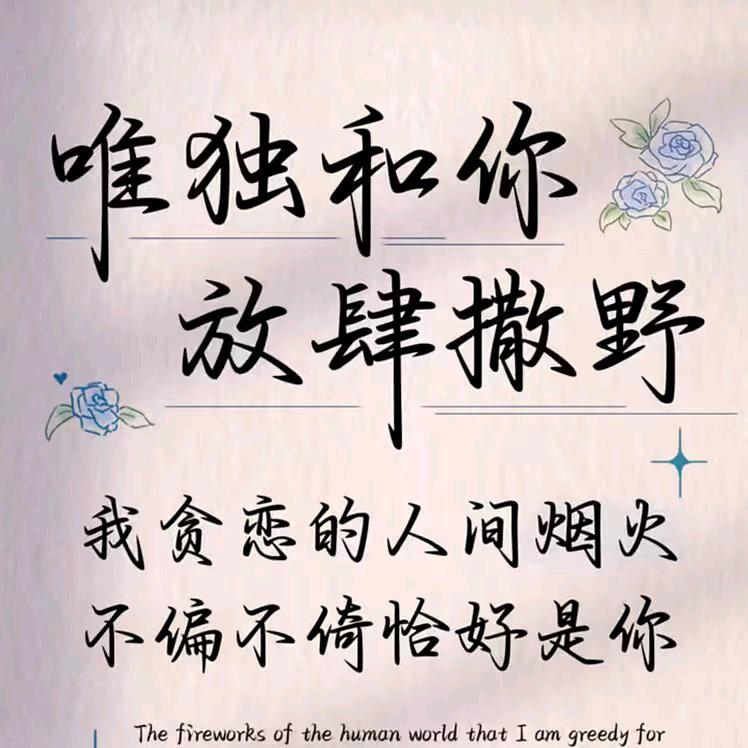 唯独和你
放肆撒野
我贪恋的人间烟火
不偏不倚恰好是你
The fireworks of the human world that I am greedy for